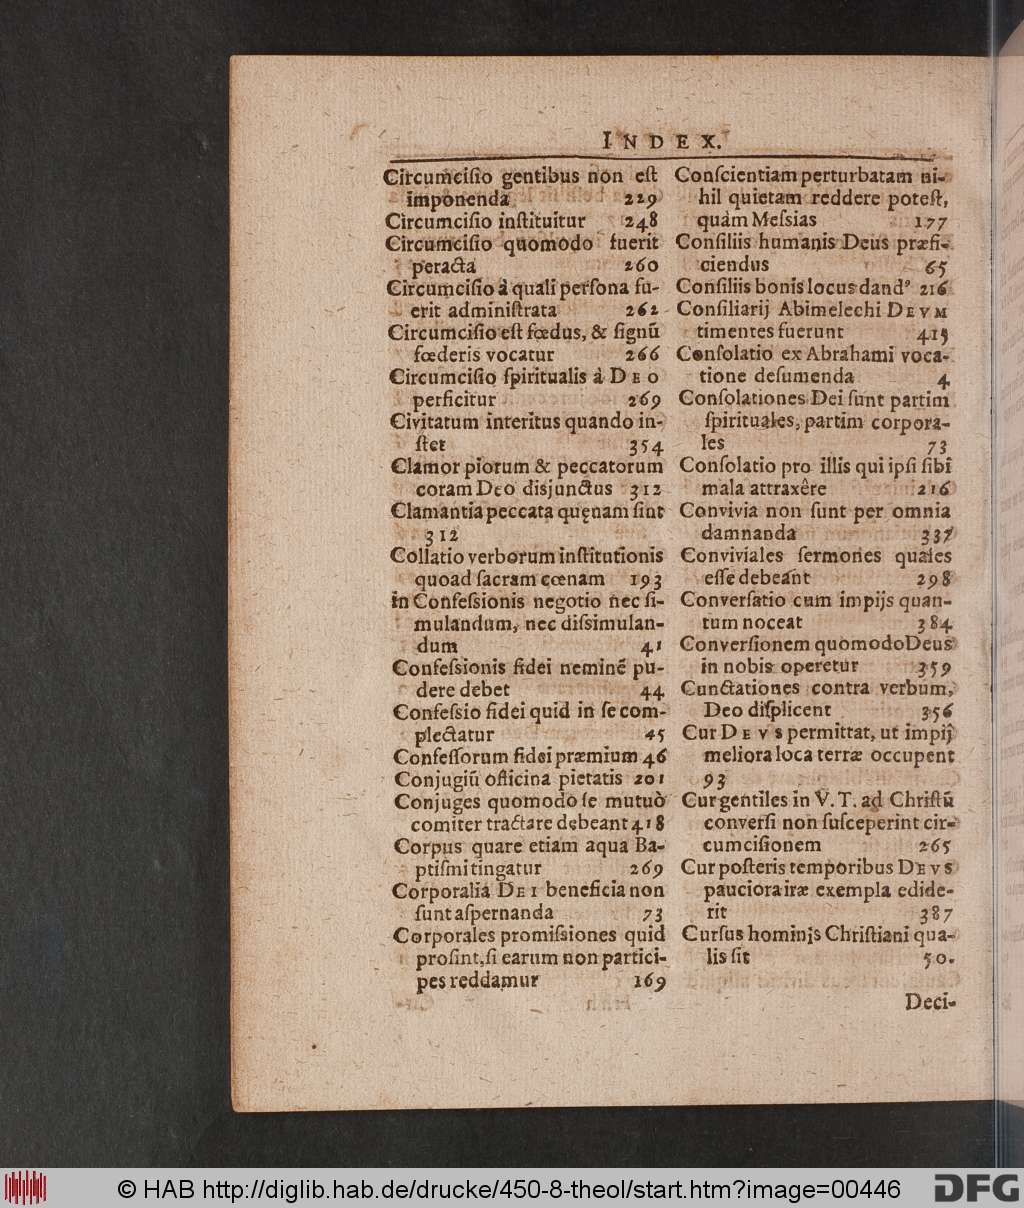 INDEX.
Circumciſio gentibus non eſt
imponenda 229
Circumciſio inſtituitur 248
Circumciſio quomodo fuerit
peracta 260
Circumciſio à quali perſona fu-
erit adminiſtrata 262
Circumciſio eſt fœdus, & ſignū
fœderis vocatur 266
Circumciſio ſpiritualis à DEO
perficitur 269
Civitatum interitus quando in-
ſtet 354
Clamor piorum & peccatorum
coram Deo disjunctus 312
Clamantia peccata quęnam ſint
312
Collatio verborum inſtitutionis
quoad ſacram cœnam 193
in Confeſsionis negotio nec ſi-
mulandum, nec diſsimulan-
dum 41
Confeſsionis fidei neminē pu-
dere debet 44
Confeſsio fidei quid in ſe com-
plectatur 45
Confeſſorum fidei præmium 46
Conjugiū officina pietatis 201
Conjuges quomodo ſe mutuò
comiter tractare debeant 418
Corpus quare etiam aqua Ba-
ptiſmi tingatur 269
Corporalia DEI beneficia non
ſunt aſpernanda 73
Corporales promiſsiones quid
proſint, ſi earum non partici-
pes reddamur 169
Conſcientiam perturbatam ni-
hil quietam reddere poteſt,
quàm Meſsias 177
Conſiliis humanis Deus præfi-
ciendus 65
Conſiliis bonis locus dandꝰ 216
Conſiliarij Abimelechi DEVM
timentes fuerunt 415
Conſolatio ex Abrahami voca-
tione deſumenda 4
Conſolationes Dei ſunt partim
ſpirituales, partim corpora-
les 73
Conſolatio pro illis qui ipſi ſibi
mala attraxêre 216
Convivia non ſunt per omnia
damnanda 337
Conviviales ſermones quales
eſſe debeant 298
Converſatio cum impijs quan-
tum noceat 384
Converſionem quomodo Deus
in nobis operetur 359
Cunctationes contra verbum,
Deo diſplicent 356
Cur DEVS permittat, ut impij
meliora loca terræ occupent
93
Cur gentiles in V. T. ad Chriſtū
converſi non ſuſceperint cir-
cumciſionem 265
Cur poſteris temporibus DEVS
pauciora iræ exempla edide-
rit 387
Curſus hominis Chriſtiani qua-
lis ſit 50.
Deci-
© HAB http://diglib.hab.de/drucke/450-8-theol/start.htm?image=00446
DFG